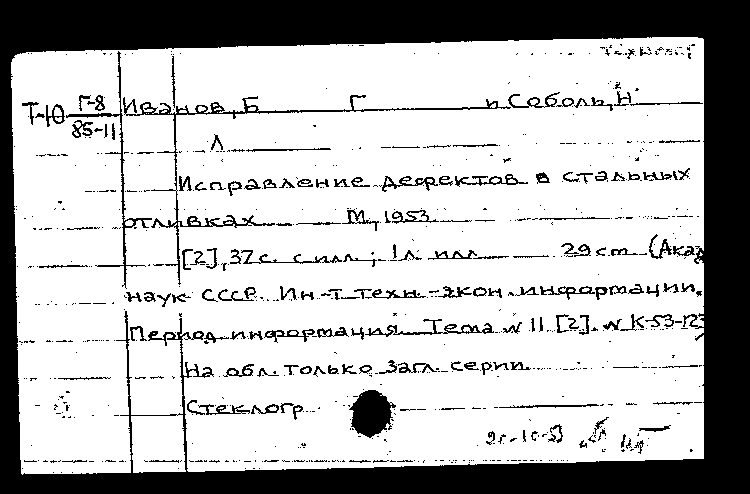 Т-Ю Г-8
85-11
Иванов, Б Г и Соболь, Н
Л
Исправление дефектов в стальных
отливках М, 1953
[2], 37 с. с илл.; 1 л. илл 29 cm (Акад
наук СССР. Ин-т техн.-экон. информации.
Период. информация. Тема № 11 [2]. № К-53-123
На обл. только загл. серии.
Стеклогр